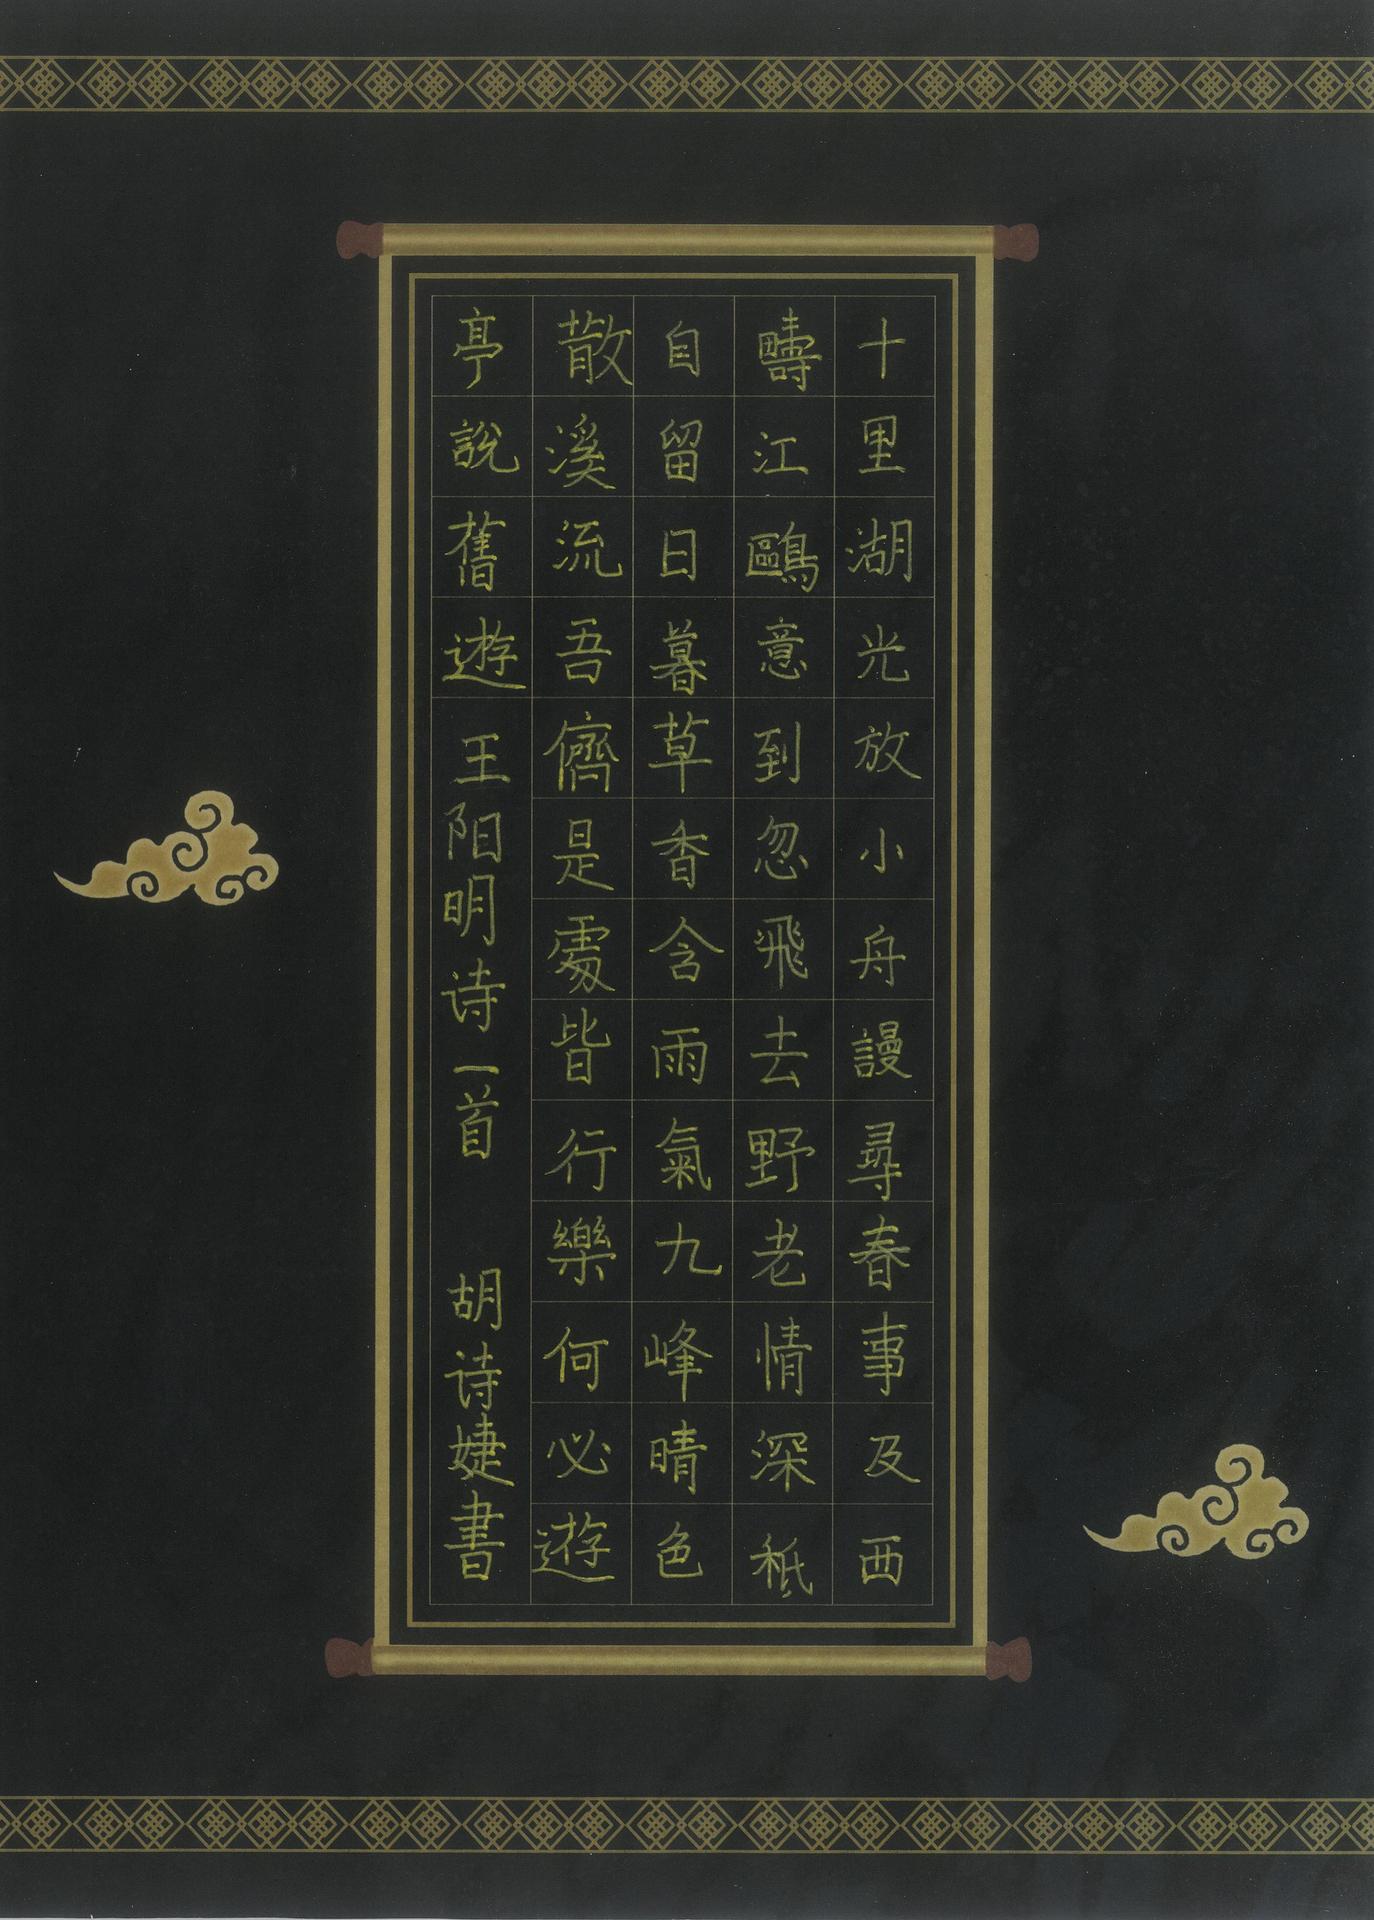 十里湖光放小舟謾尋春事及西
疇江鷗意到忽飛去野老情深秪
自留日暮草香含雨氣九峰晴色
散溪流吾儕是處皆行樂何必遊
亭說舊遊 王阳明诗一首 胡诗婕書